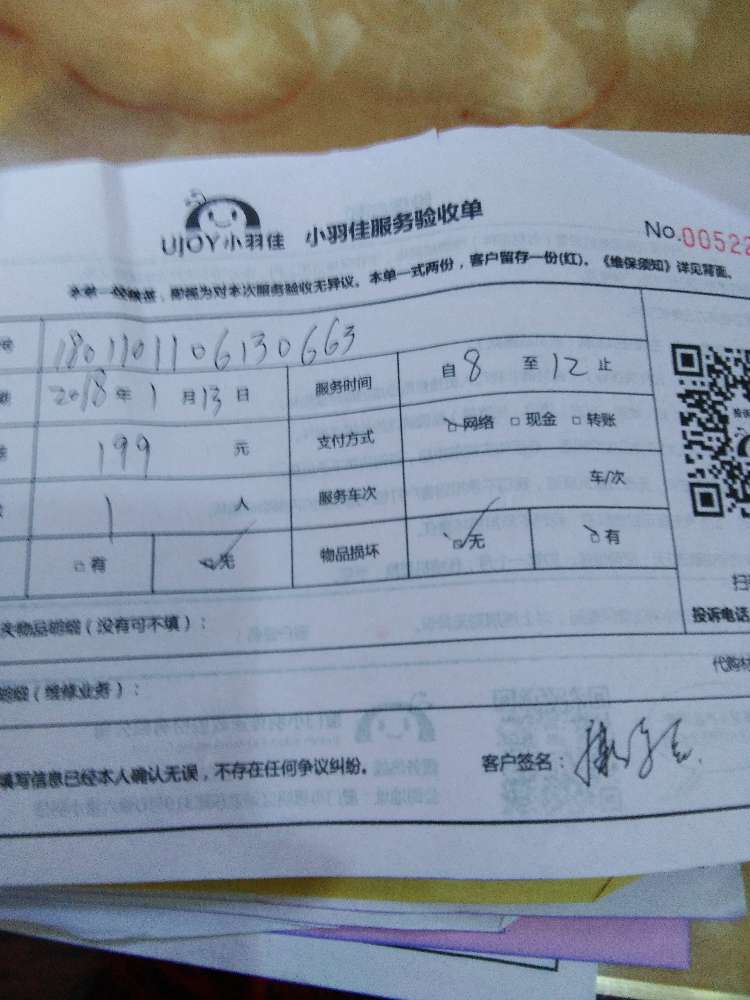 UJOY小羽佳 小羽佳服务验收单
No.00522
本单一经签署，即视为对本次服务验收无异议。本单一式两份，客户留存一份(红)。《维保须知》详见背面。
号 1801101106130663
期 2018年1月13日 服务时间 自8至12止
199元 支付方式 网络 现金 转账
1人 服务车次 车/次
有 无 物品损坏 无 有
失物品明细（没有可不填）：
投诉电话
明细（维修业务）：
代购材
填写信息已经本人确认无误，不存在任何争议纠纷。 客户签名：